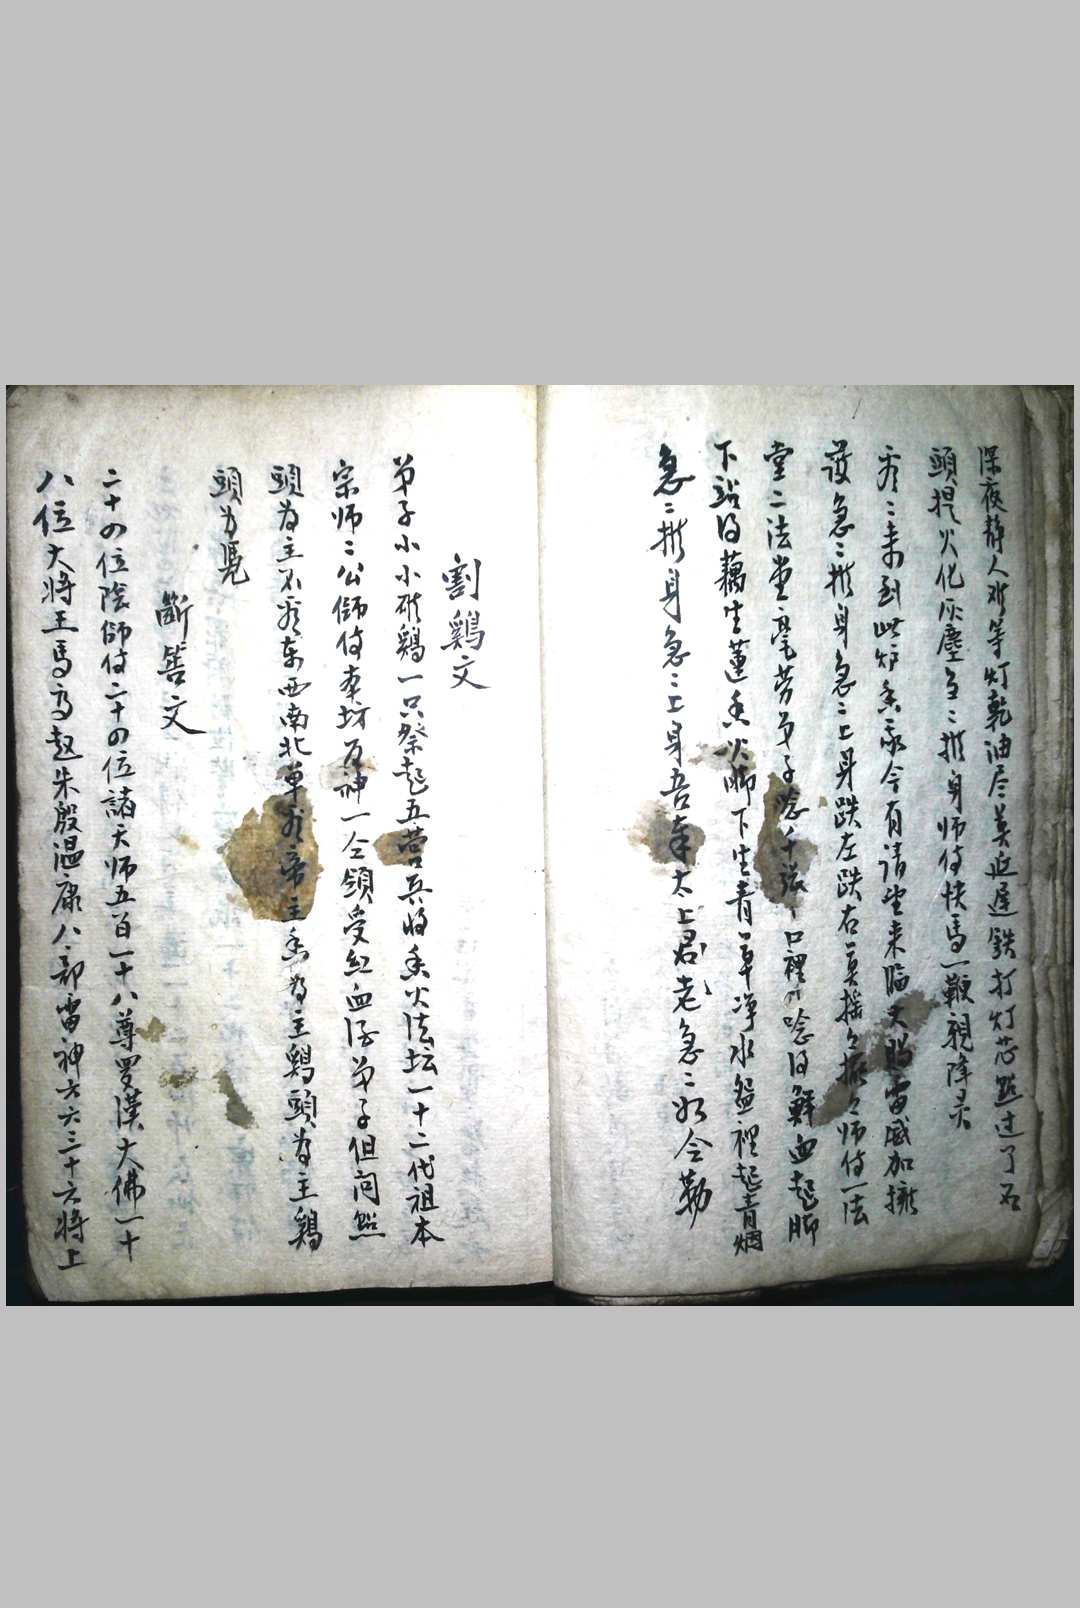 深夜靜人难等灯乾油尽莫延遲鉄打灯芯點过了呑
頭提火化灰塵急二推身师付快馬一鞭親降灵
君二来到此炉香永今有请坐来临雷威加擁
護急二推身急二上身跌左跌右莫摇々振々师付一法
堂二法堂毫劳弟子唸千張口裡唸得鮮血起脚
下踏得藕生蓮香火脚下生青草净水盌裡起青烟
急二推身急二上身吾奉太上君老急二如令勅
割鷄文
弟子小小砍鷄一只祭起五营兵将香火法坛一十二代祖本
宗师二公师付本坊万神一仝领受紅血后弟子但问熊
頭为主不为东西南北單为帝主香为主鷄頭为主鷄
頭为凭
斷筶文
二十四位陰师付二十四位諸天师五百一十八尊罗漢大佛一十
八位大将王馬高赵朱殷温康八部雷神六六三十六将上